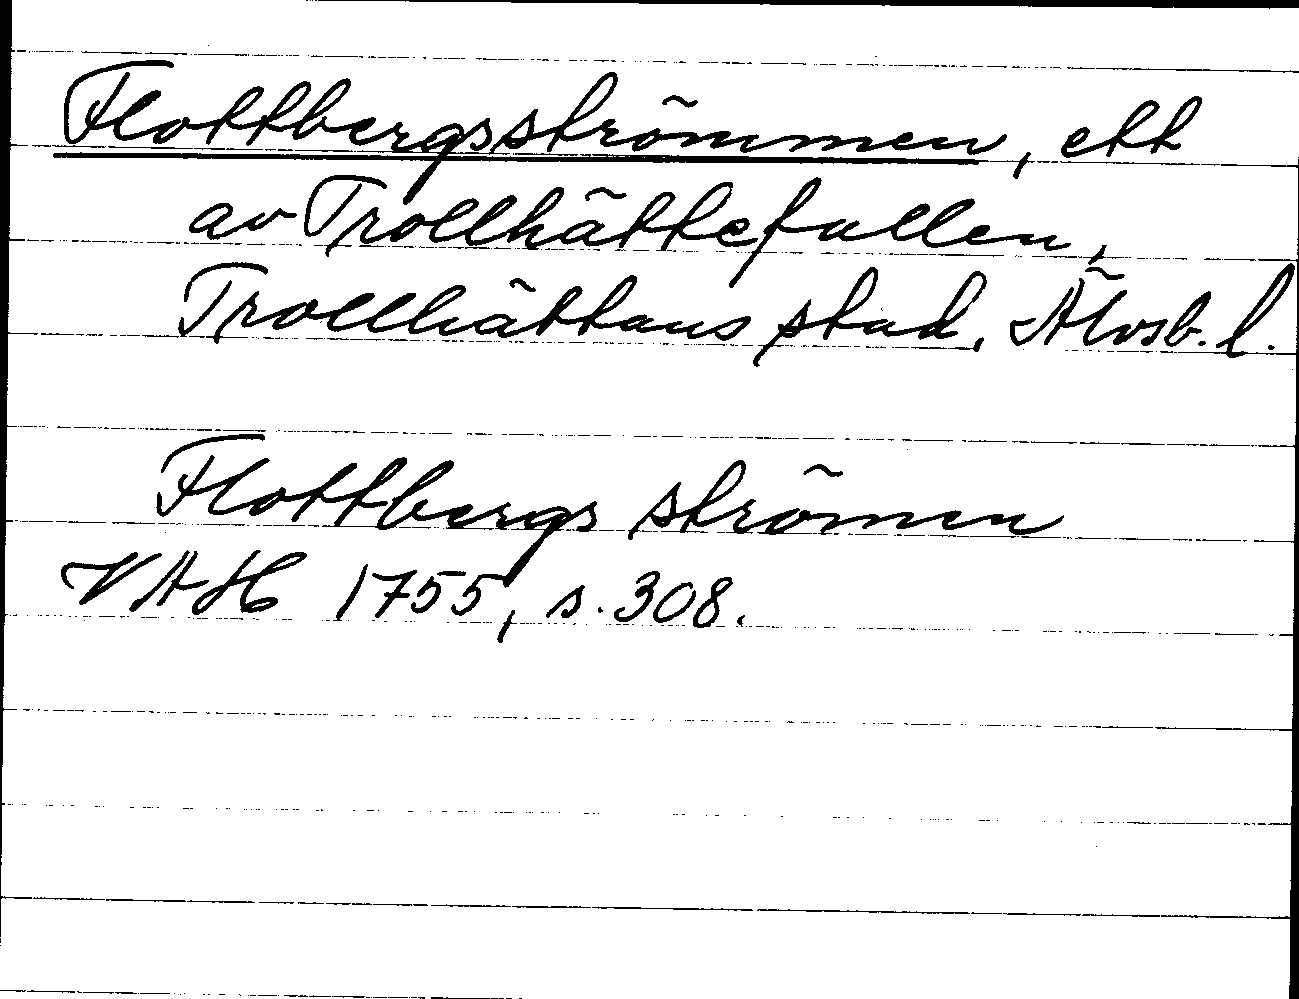 Flottbergsströmmen, ett
av Trollhättefallen,
Trollhättans stad, Älvsb. l.
Flottbergs strömen
VAH 1755, s. 308.